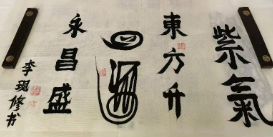 紫氣
東方升
永昌盛
李 修书